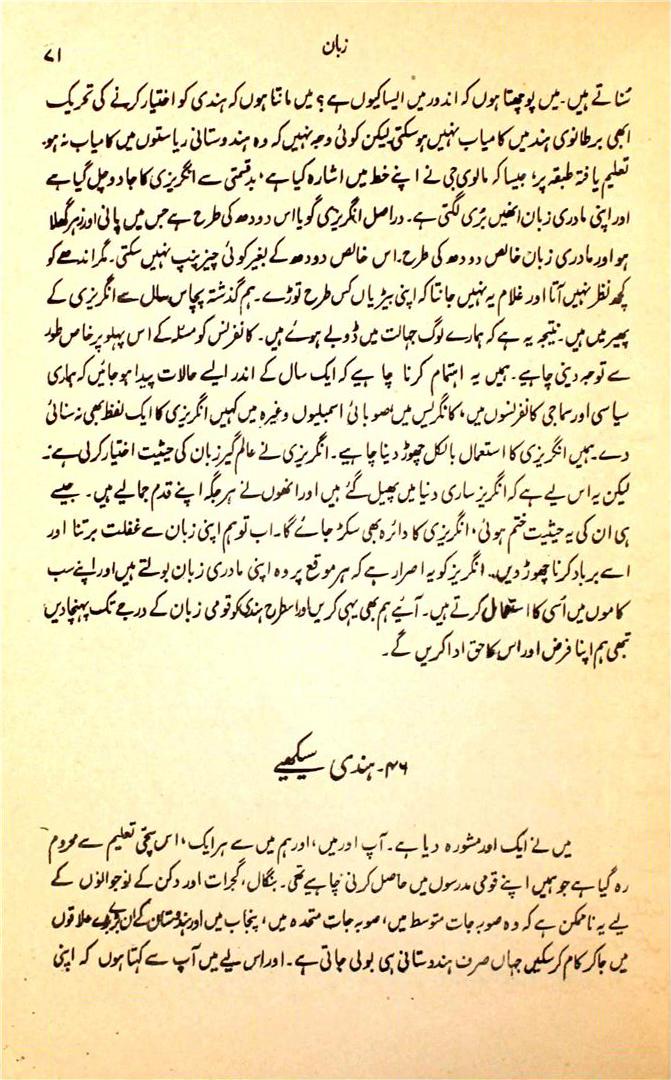 زبان
۷۱
سُناتے ہیں۔ میں پوچھتا ہوں کہ اندور میں ایسا کیوں ہے؟ میں مانتا ہوں کہ ہندی کو اختیار کرنے کی تحریک
ابھی برطانوی ہند میں کامیاب نہیں ہو سکتی لیکن کوئی وجہ نہیں کہ وہ ہندوستانی ریاستوں میں کامیاب نہ ہو۔
تعلیم یافتہ طبقہ پر، جیسا کہ مالوی جی نے اپنے خط میں اشارہ کیا ہے، بدقسمتی سے انگریزی کا جادو چل گیا ہے
اور اپنی مادری زبان انھیں بُری لگتی ہے۔ دراصل انگریزی گویا اس دودھ کی طرح ہے جس میں پانی اور زہر گھلا
ہو اور مادری زبان خالص دودھ کی طرح۔ اس خالص دودھ کے بغیر کوئی چیز پنپ نہیں سکتی۔ مگر اندھے کو
کچھ نظر نہیں آتا اور غلام یہ نہیں جانتا کہ اپنی بیڑیاں کس طرح توڑے۔ ہم گذشتہ پچاس سال سے انگریزی کے
پھیر میں ہیں۔ نتیجہ یہ ہے کہ ہمارے لوگ جہالت میں ڈوبے ہوئے ہیں۔ کانفرنس کو مسئلہ کے اس پہلو پر خاص طور
سے توجہ دینی چاہیے۔ ہمیں یہ اہتمام کرنا چاہیے کہ ایک سال کے اندر ایسے حالات پیدا ہو جائیں کہ ہماری
سیاسی اور سماجی کانفرنسوں میں، کانگرس میں، صوبائی اسمبلیوں وغیرہ میں کہیں انگریزی کا ایک لفظ بھی نہ سنائی
دے۔ ہمیں انگریزی کا استعمال بالکل چھوڑ دینا چاہیے۔ انگریزی نے عالم گیر زبان کی حیثیت اختیار کر لی ہے۔
لیکن یہ اس لیے ہے کہ انگریز ساری دنیا میں پھیل گئے ہیں اور انھوں نے ہر جگہ اپنے قدم جما لیے ہیں۔ جیسے
ہی ان کی یہ حیثیت ختم ہوئی، انگریزی کا دائرہ بھی سکڑ جائے گا۔ اب تو ہم اپنی زبان سے غفلت برتنا اور
اسے برباد کرنا چھوڑ دیں۔ انگریز کو یہ اصرار ہے کہ ہر موقع پر وہ اپنی مادری زبان بولتے ہیں اور اپنے سب
کاموں میں اُسی کا استعمال کرتے ہیں۔ آیئے ہم بھی یہی کریں اور اسطرح ہندی کو قومی زبان کے درجے تک پہنچا دیں
تبھی ہم اپنا فرض اور اس کا حق ادا کریں گے۔
۴۶۔ ہندی سیکھیے
میں نے ایک اور مشورہ دیا ہے۔ آپ اور میں، اور ہم میں سے ہر ایک، اس سچی تعلیم سے محروم
رہ گیا ہے جو ہمیں اپنے قومی مدرسوں میں حاصل کرنی چاہیے تھی۔ بنگال، گجرات اور دکن کے نوجوانوں کے
لیے یہ ناممکن ہے کہ وہ صوبہ جات متوسط میں، صوبہ جات متحدہ میں، پنجاب میں اور ہندوستان کے ان بڑے بڑے علاقوں
میں جا کر کام کر سکیں جہاں صرف ہندوستانی ہی بولی جاتی ہے۔ اور اس لیے میں آپ سے کہتا ہوں کہ اپنی